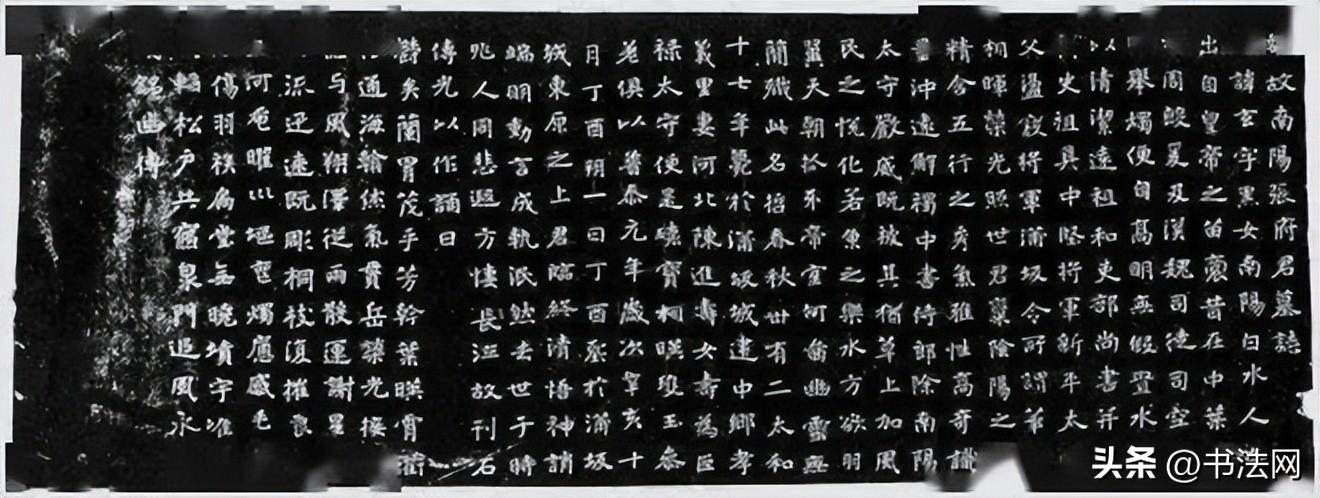 故南陽張府君墓誌
諱玄字黑女南陽白水人
出自皇帝之苗裔昔在中葉
周殷爰及漢魏司徒司空
舉燭便自高明無假置水
以清潔遠祖和吏部尚書并
史祖具中堅將軍新平太
父盪寇將軍蒲坂令所謂華
相暉榮光照世君稟陰陽之
精含五行之秀氣雅性高奇識
沖遠解褐中書侍郎除南陽
太守嚴威既被其猶草上加風
民之悅化若魚之樂水方欲羽
翼天朝抓牙帝室何啚幽靈無
簡殲此名哲春秋卅有二太和
十七年薨於蒲坂城建中鄉孝
義里妻河北陳進壽女壽為巨
祿太守便是瓌寶相暎瓊玉參
差俱以普泰元年歲次辛亥十
月丁酉朔一日丁酉葬於蒲坂
城東原之上君臨終清悟神誚
端明動言成軌泯然去世于時
兆人同悲遐方悽長泣故刊石
傳光以作誦曰
鬱矣蘭胄茂乎芳幹葉暎霄衢
通海翰休氣貫岳榮光接
与風翔澤從雨散運謝星
流迅速既彫桐枝復摧良
河奄曜川堙𡑞燭巵感毛
傷羽族扃堂無曉墳宇唯
韜松戶共寢泉門追風永
銘幽傳
头条 @书法网